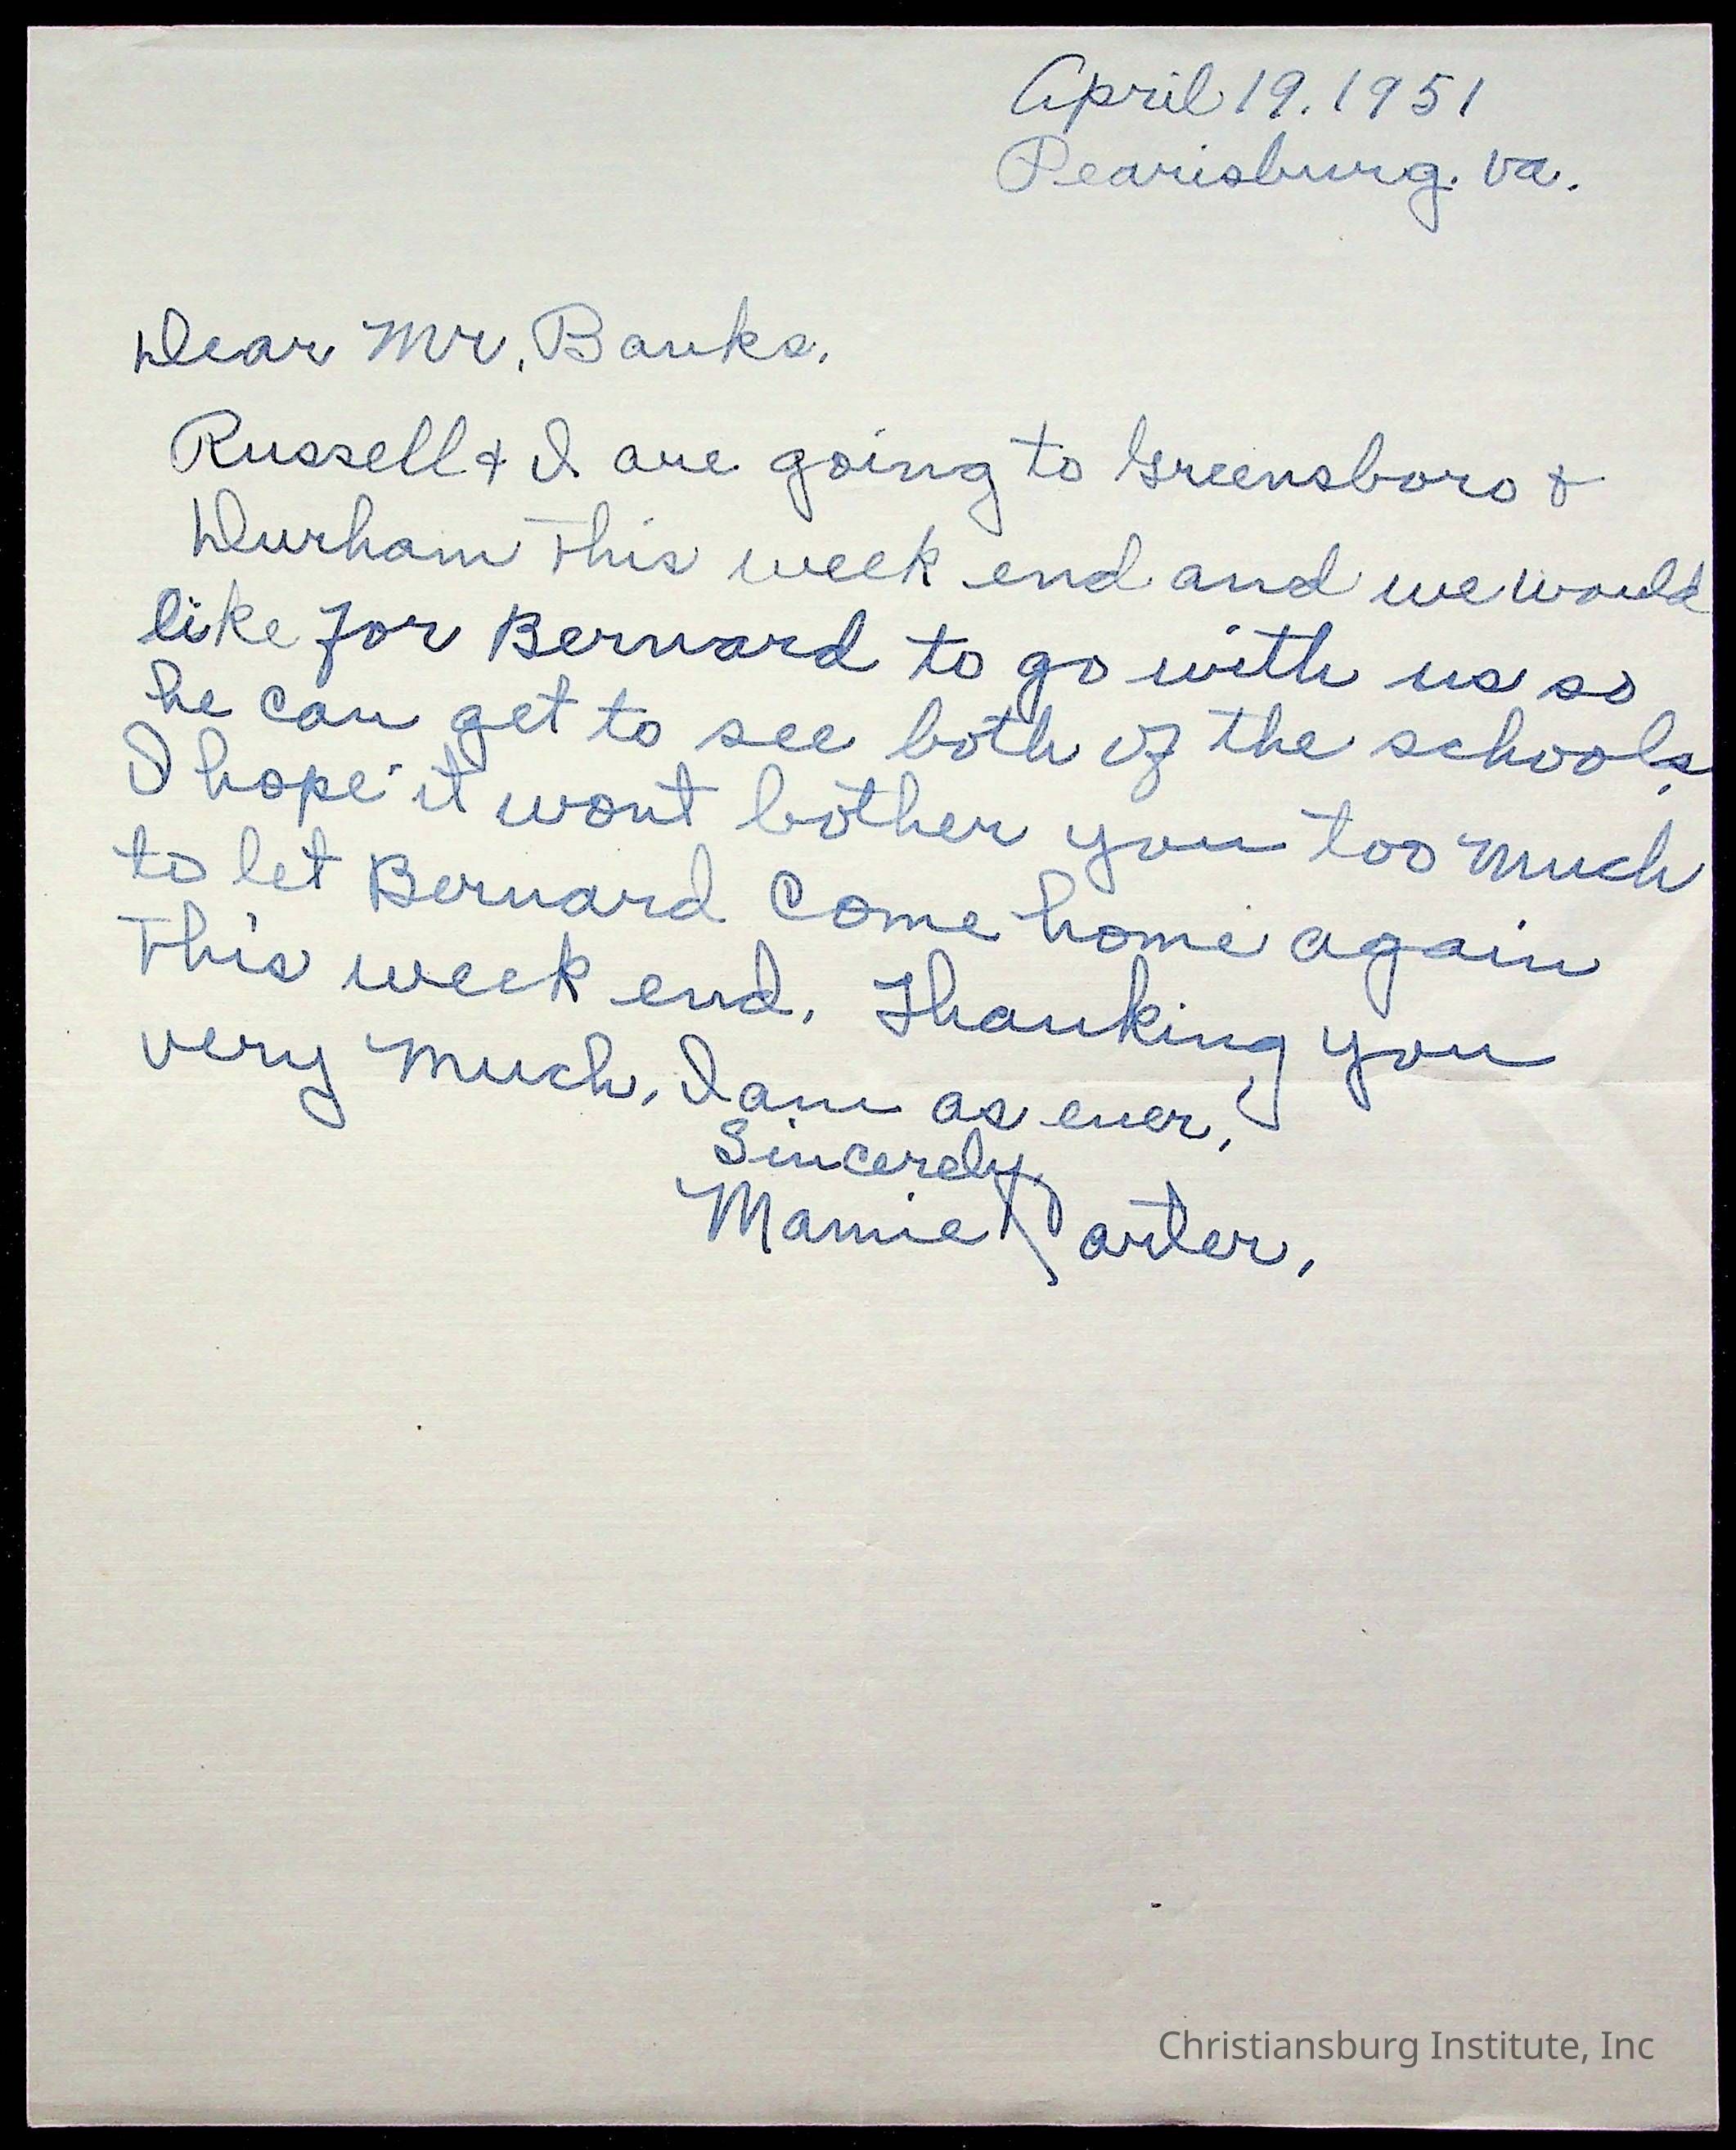 April 19. 1951
Pearisburg. Va.
Dear Mr. Banks.
Russell & I are going to Greensboro &
Durham This week end and we would
like for Bernard to go with us so
he can get to see both of the schools,
I hope it wont bother you too much
to let Bernard Come home again
This week end. Thanking you
very much, I am as ever,
Sincerely,
Mamie Carter,
Christiansburg Institute, Inc